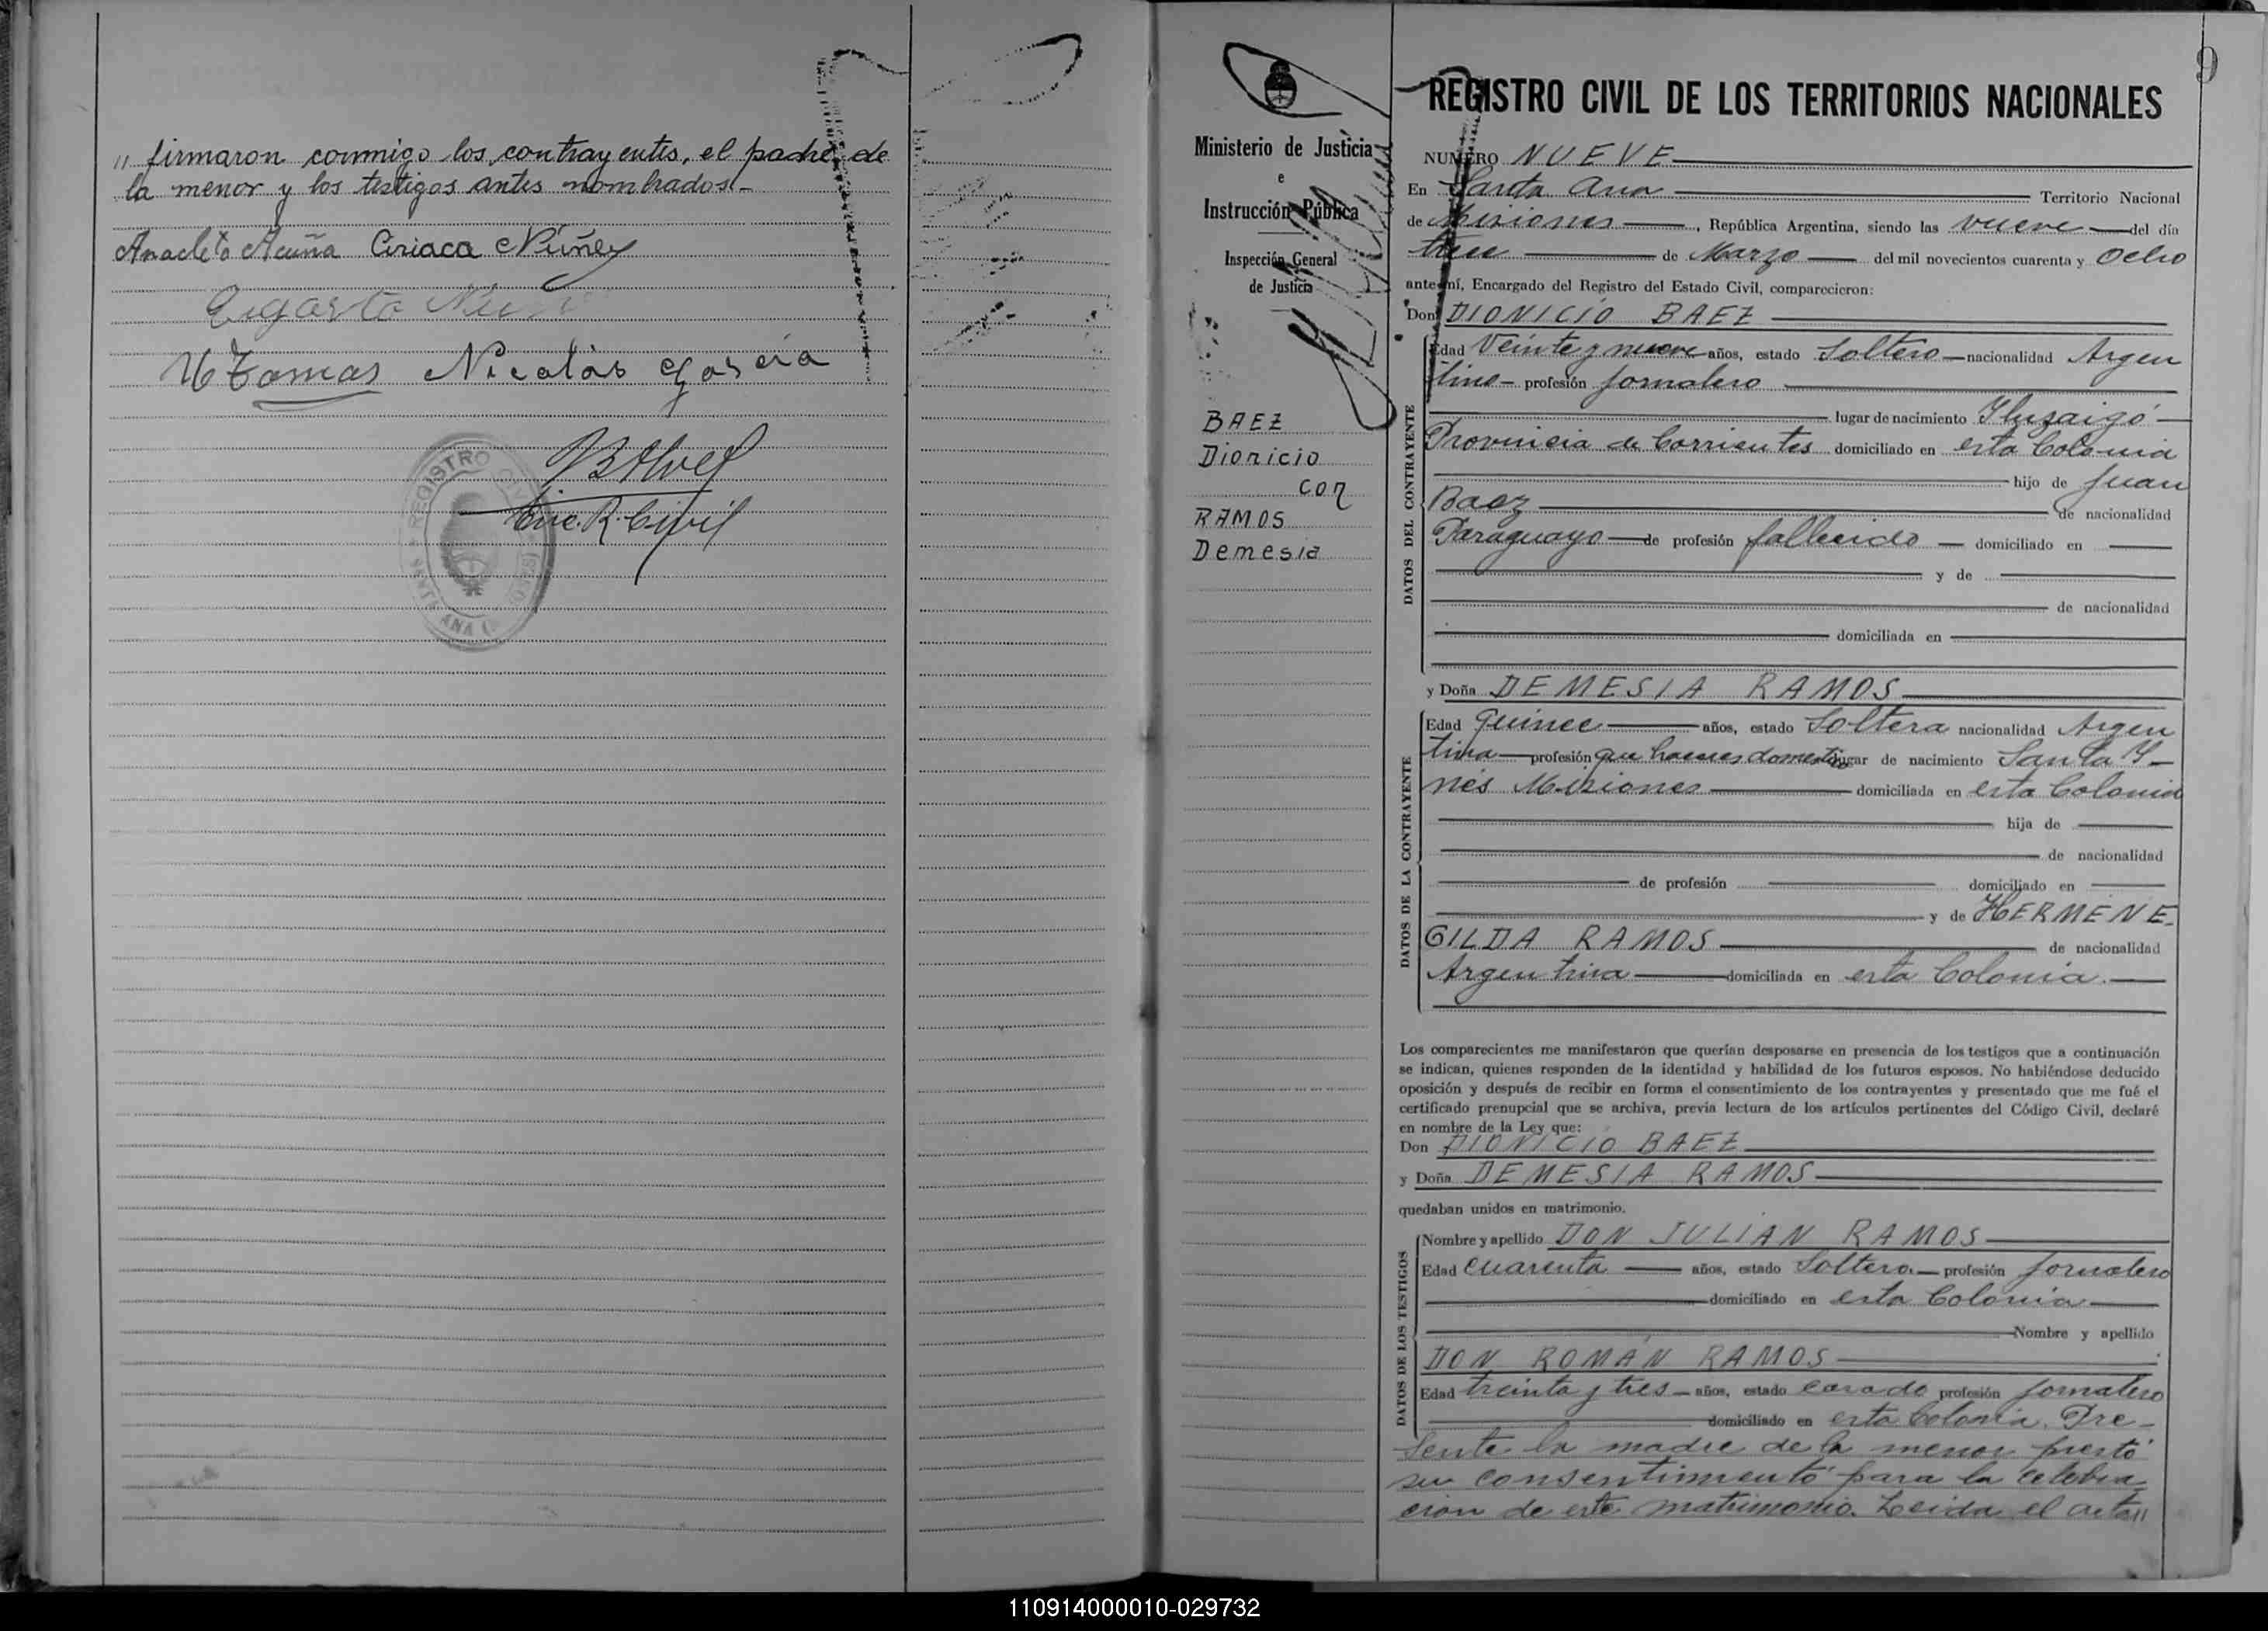 " firmaron conmigo los contrayentes, el padre de
la menor y los testigos antes nombrados.-
Anacleto Acuña Ciriaca Núñez
Tomas Nicolás García
Enc. R. Civil
REGISTRO CIVIL
ANA
Ministerio de Justicia
e
Instrucción Pública
Inspección General
de Justicia
BAEZ
Dionicio
con
RAMOS
Demesia
9
REGISTRO CIVIL DE LOS TERRITORIOS NACIONALES
NUMERO NUEVE
En Santa Ana Territorio Nacional
de Misiones, República Argentina, siendo las nueve del día
trece de Marzo del mil novecientos cuarenta y ocho
ante mí, Encargado del Registro del Estado Civil, comparecieron:
Don DIONICIO BAEZ
DATOS DEL CONTRAYENTE
Edad Veinte y nueve años, estado Soltero nacionalidad Argen
tino profesión jornalero
lugar de nacimiento Ytuzaigó
Provincia de Corrientes domiciliado en esta Colonia
hijo de Juan
Baez de nacionalidad
Paraguayo de profesión fallecido domiciliado en
y de
de nacionalidad
domiciliada en
y Doña DEMESIA RAMOS
DATOS DE LA CONTRAYENTE
Edad Quince años, estado Soltera nacionalidad Argen
tina profesión que haceres domesticos lugar de nacimiento Santa Y-
nés Misiones domiciliada en esta Colonia
hija de
de nacionalidad
de profesión domiciliado en
y de HERMENE-
GILDA RAMOS de nacionalidad
Argentina domiciliada en esta Colonia.
Los comparecientes me manifestaron que querían desposarse en presencia de los testigos que a continuación
se indican, quienes responden de la identidad y habilidad de los futuros esposos. No habiéndose deducido
oposición y después de recibir en forma el consentimiento de los contrayentes y presentado que me fué el
certificado prenupcial que se archiva, previa lectura de los artículos pertinentes del Código Civil, declaré
en nombre de la Ley que:
Don DIONICIO BAEZ
y Doña DEMESIA RAMOS
quedaban unidos en matrimonio.
DATOS DE LOS TESTIGOS
Nombre y apellido DON JULIAN RAMOS
Edad cuarenta años, estado Soltero profesión jornalero
domiciliado en esta Colonia
Nombre y apellido
DON ROMÁN RAMOS
Edad treinta y tres años, estado casado profesión jornalero
domiciliado en esta Colonia. Pre-
sente la madre de la menor prestó
su consentimiento para la celebra-
cion de este matrimonio. Leida el acta"
110914000010-029732